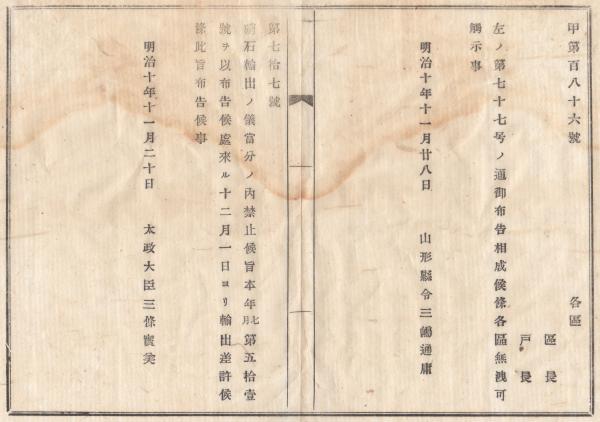 甲第百八十六號
各區
區長
戸長
左ノ第七十七号ノ通御布告相成候條各區無洩可
觸示事
明治十年十一月廿八日
山形縣令三島通庸
第七拾七號
硝石輸出ノ儀當分ノ內禁止候旨本年七月第五拾壹
號ヲ以布告候處來ル十二月一日ヨリ輸出差許候
條此旨布告候事
明治十年十一月二十日
太政大臣三條實美